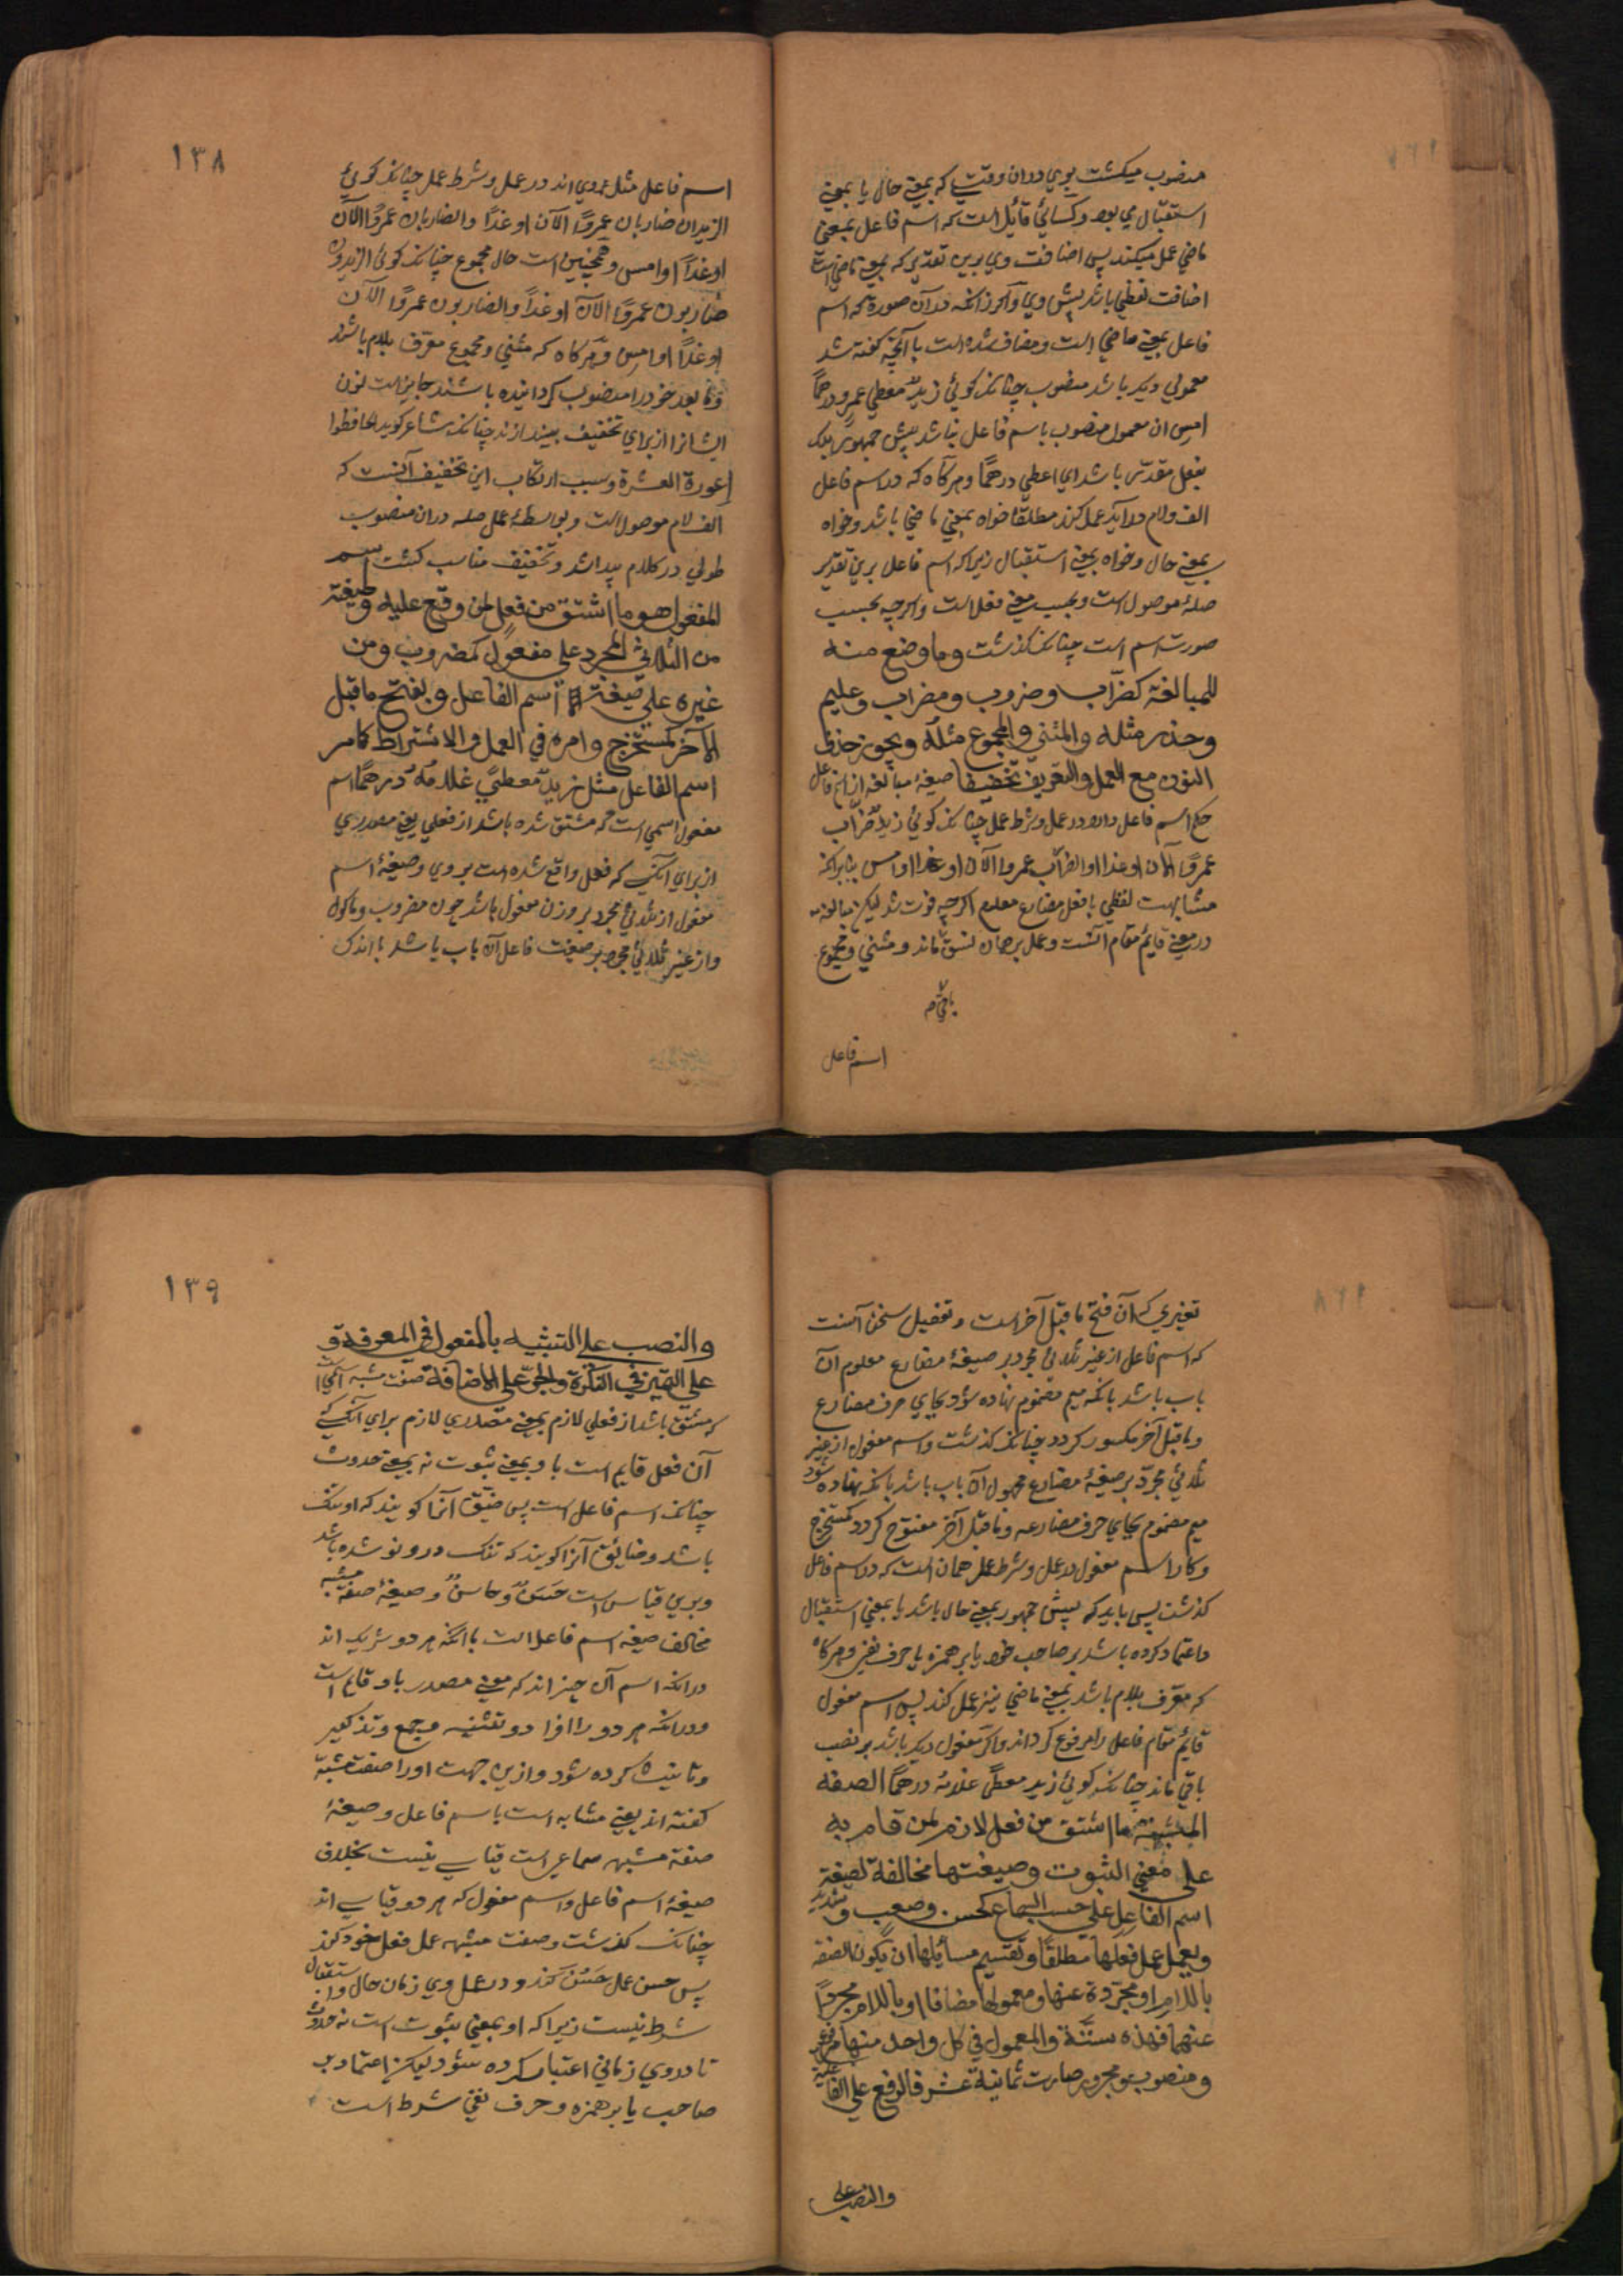 منصوب میکشت بوی دران وقتی که بمعنی حال یا بمعنی
استقبال می بود و کسائی قائل است که اسم فاعل بمعنی
ماضی عمل میکند پس اضافت وی برین تقدیر که بمعنی ماضی است
اضافت لفظی باشد پیش وی و اکر زانکه در آن صورة که اسم
فاعل بمعنی ماضی است و مضاف شده است با آنچه کفته شد
معمولی دیکر باشد منصوب چنانکه کوئی زیدٌ معطی عمرو درهمًا
امس ان معمول منصوب باسم فاعل نباشد پیش جمهور بلکه
بفعل مقدر باشد ای اعطی درهمًا و هرکاه که در اسم فاعل
الف و لام در آید عمل کند مطلقًا خواه بمعنی ماضی باشد و خواه
بمعنی حال و خواه بمعنی استقبال زیرا که اسم فاعل برین تقدیر
صلهٔ موصول است و بحسب معنی فعل است و اکرچه بحسب
صورت اسم است چنانکه کذشت وما وضع منه
للمبالغة کضرّاب وضروب ومضراب وعلیم
وحذر مثله والمثنی والمجموع مثلُه ویجوز حذف
النون مع العمل والتعریف تخفیفا صیغهٔ مبالغه از اسم فاعل
حکم اسم فاعل دارد در عمل و شرط عمل چنانکه کوئی زیدٌ ضرّاب
عمرًوا الآن او غدا او الضرّاب عمروا الآن او غدا او امس بنابرانکه
مشابهت لفظی با فعل مضارع معلوم اکرچه فوت شد لیکن مبالغه
در معنی قایم مقام آنست و عمل برهمان نسق ماند و مثنی و مجموع
باقی
اسم فاعل
١٣٨
اسم فاعل مثل مروی اند در عمل و شرط عمل چنانکه کوئی
الزیدان ضاربان عمروًا الآن او غدًا والضاربان عمروًا الآن
او غدًا او امس و همچنین است حال مجموع چنانکه کوئی الزیدون
ضاربون عمروًا الآن او غدًا والضاربون عمروًا الآن
او غدًا او امس و هرکاه که مثنی و مجموع معرّف بلام باشند
و ما بعد خود را منصوب کردانیده باشند جایز است نون
ایشانرا از برای تخفیف بیندازند چنانکه شاعر کوید الحافظوا
عورة العشیرة و سبب ارتکاب این تخفیف آنست که
الف لام موصول است و بواسطهٔ عمل صله دران منصوب
طولی در کلام پیدا شد و تخفیف مناسب کشت اسم
المفعول هو ما اشتق من فعلٍ لمن وقع علیه وصیغته
من الثلاثی المجرد علی مفعولٍ کمضروب ومن
غیره علی صیغة اسم الفاعل وبفتح ما قبل
الآخر کمستخرج وامره فی العمل والاشتراط کامر
اسم الفاعل مثل زیدٌ معطیً غلامُهُ درهمًا اسم
مفعول اسمی است که مشتق شده باشد از فعلی یعنی مصدری
از برای آنکسی که فعل واقع شده است بروی و صیغهٔ اسم
مفعول از ثلاثی مجرد بر وزن مفعول باشد چون مضروب و ماکول
و از غیر ثلاثی مجرد بر صیغت فاعل آن باب باشد با اندک
تغیری که آن فتح ما قبل آخر است و تفصیل سخن آنست
که اسم فاعل از غیر ثلاثی مجرد بر صیغهٔ مضارع معلوم آن
باب باشد بانکه میم مضموم نهاده شود بجای حرف مضارع
و ما قبل آخر مکسور کردد چنانکه کذشت و اسم مفعول از غیر
ثلاثی مجرّد بر صیغهٔ مضارع مجهول آن باب باشد بانکه نهاده شود
میم مضموم بجای حرف مضارعه و ما قبل آخر مفتوح کردد کمستخرج
و کار اسم مفعول در عمل و شرط عمل همان است که در اسم فاعل
کذشت پس باید که پیش جمهور بمعنی حال باشد یا بمعنی استقبال
و اعتماد کرده باشد بر صاحب خود یا بر همزه یا حرف نفی و هرکاه
که معرّف بلام باشد بمعنی ماضی نیز عمل کند پس اسم مفعول
قایم مقام فاعل را مرفوع کرداند و اکر مفعول دیکر باشد بر نصب
باقی ماند چنانکه کوئی زید معطیً غلامه درهمًا الصفة
المشبهة ما اشتق من فعل لازم لمن قام به
علی معنی الثبوت وصیغتها مخالفة لصیغة
اسم الفاعل علی حسب السماع کحسن وصعب وشدید
ویعمل عمل فعلها مطلقًا وتقسیم مسائلها ان یکون الصفة
باللام او مجرّدة عنها ومعمولها مضافا او باللام او مجردًا
عنهما فهذه ستّة والمعمول فی کل واحد منها مرفوع
ومنصوب ومجرور صارت ثمانیة عشر فالرفع علی الفاعلیة
والنصب علی
١٣٩
والنصب علی التشبیه بالمفعول فی المعرفة و
علی التمیز فی النکرة والجرّ علی الاضافة صفت مشبه اسمی است
که مشتق باشد از فعلی لازم یعنی مصدری لازم برای آنکسی که
آن فعل قایم است باو بمعنی ثبوت نه بمعنی حدوث
چنانکه اسم فاعل است پس ضیّق آنرا کویند که او تنک
باشد و ضایق آنرا کویند که تنک درو نو شده باشد
و برین قیاس است حَسَنٌ و حاسنٌ و صیغهٔ صفة مشبه
مخالف صیغهٔ اسم فاعل است با آنکه هر دو شریک اند
درانکه اسم آن چیز اند که معنی مصدر باو قایم است
و درانکه هر دو را افراد و تثنیه و جمع و تذکیر
و تانیث کرده شود و ازین جهت او را صفت مشبّه
کفته اند یعنی مشابه است باسم فاعل و صیغهٔ
صفة مشبهه سماعی است قیاسی نیست بخلاف
صیغهٔ اسم فاعل و اسم مفعول که هر دو قیاسی اند
چنانکه کذشت و صفت مشبهه عمل فعل خود کند
پس حسن عمل حَسُنَ کند و در عمل وی زمان حال و استقبال
شرط نیست زیرا که او بمعنی ثبوت است نه حدوث
تا در وی زمانی اعتبار کرده شود لیکن اعتماد بر
صاحب یا بر همزه و حرف نفی شرط است